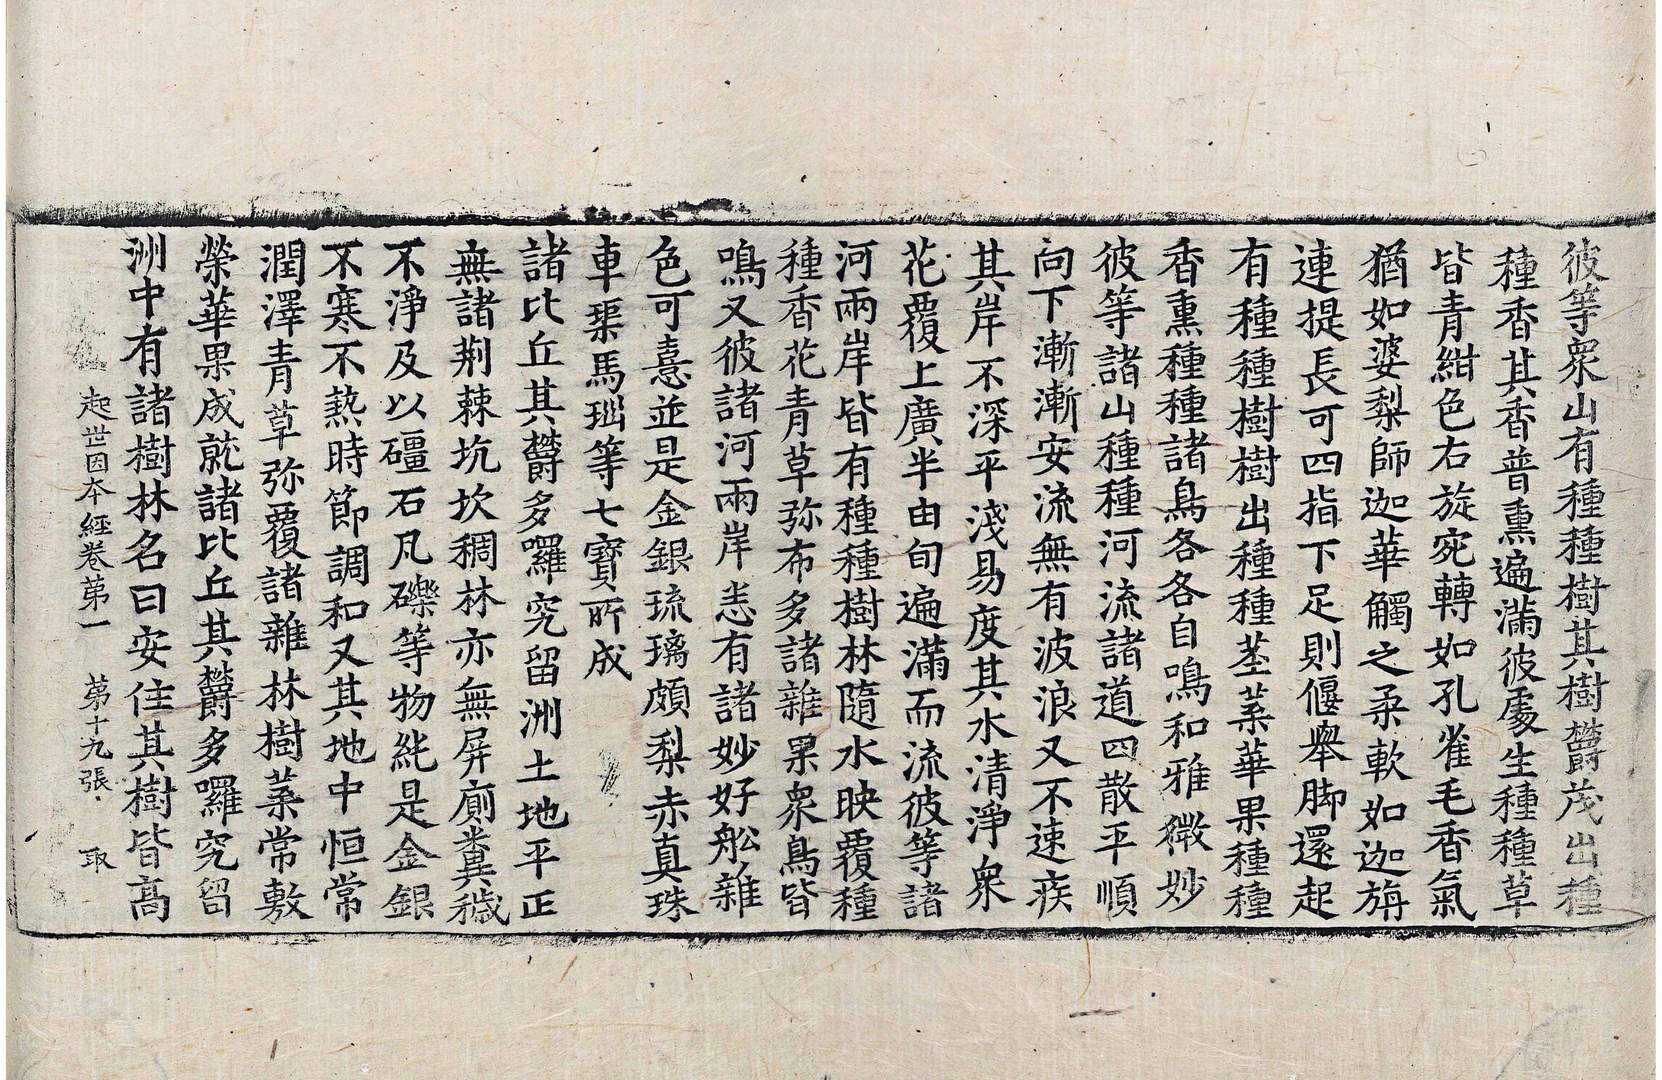 彼等衆山有種種樹其樹欝茂出種
種香其香普熏遍滿彼處生種種草
皆青紺色右旋宛轉如孔雀毛香氣
猶如婆梨師迦華觸之柔軟如迦旃
連提長可四指下足則偃舉脚還起
有種種樹樹出種種莖葉華果種種
香熏種種諸鳥各各自鳴和雅微妙
彼等諸山種種河流諸道四散平順
向下漸漸安流無有波浪又不速疾
其岸不深平淺易度其水清淨衆
花覆上廣半由旬遍滿而流彼等諸
河兩岸皆有種種樹林隨水映覆種
種香花青草弥布多諸雜果衆鳥皆
鳴又彼諸河兩岸悉有諸妙好舩雜
色可憙並是金銀琉璃頗梨赤真珠
車𤦲馬瑙等七寶所成
諸比丘其欝多囉究留洲土地平正
無諸荆棘坑坎稠林亦無屏廁糞穢
不淨及以礓石瓦礫等物純是金銀
不寒不熱時節調和又其地中恒常
潤澤青草弥覆諸雜林樹葉常敷
榮華果成就諸比丘其欝多囉究留
洲中有諸樹林名曰安住其樹皆高
起世因本經卷第一 第十九張 取